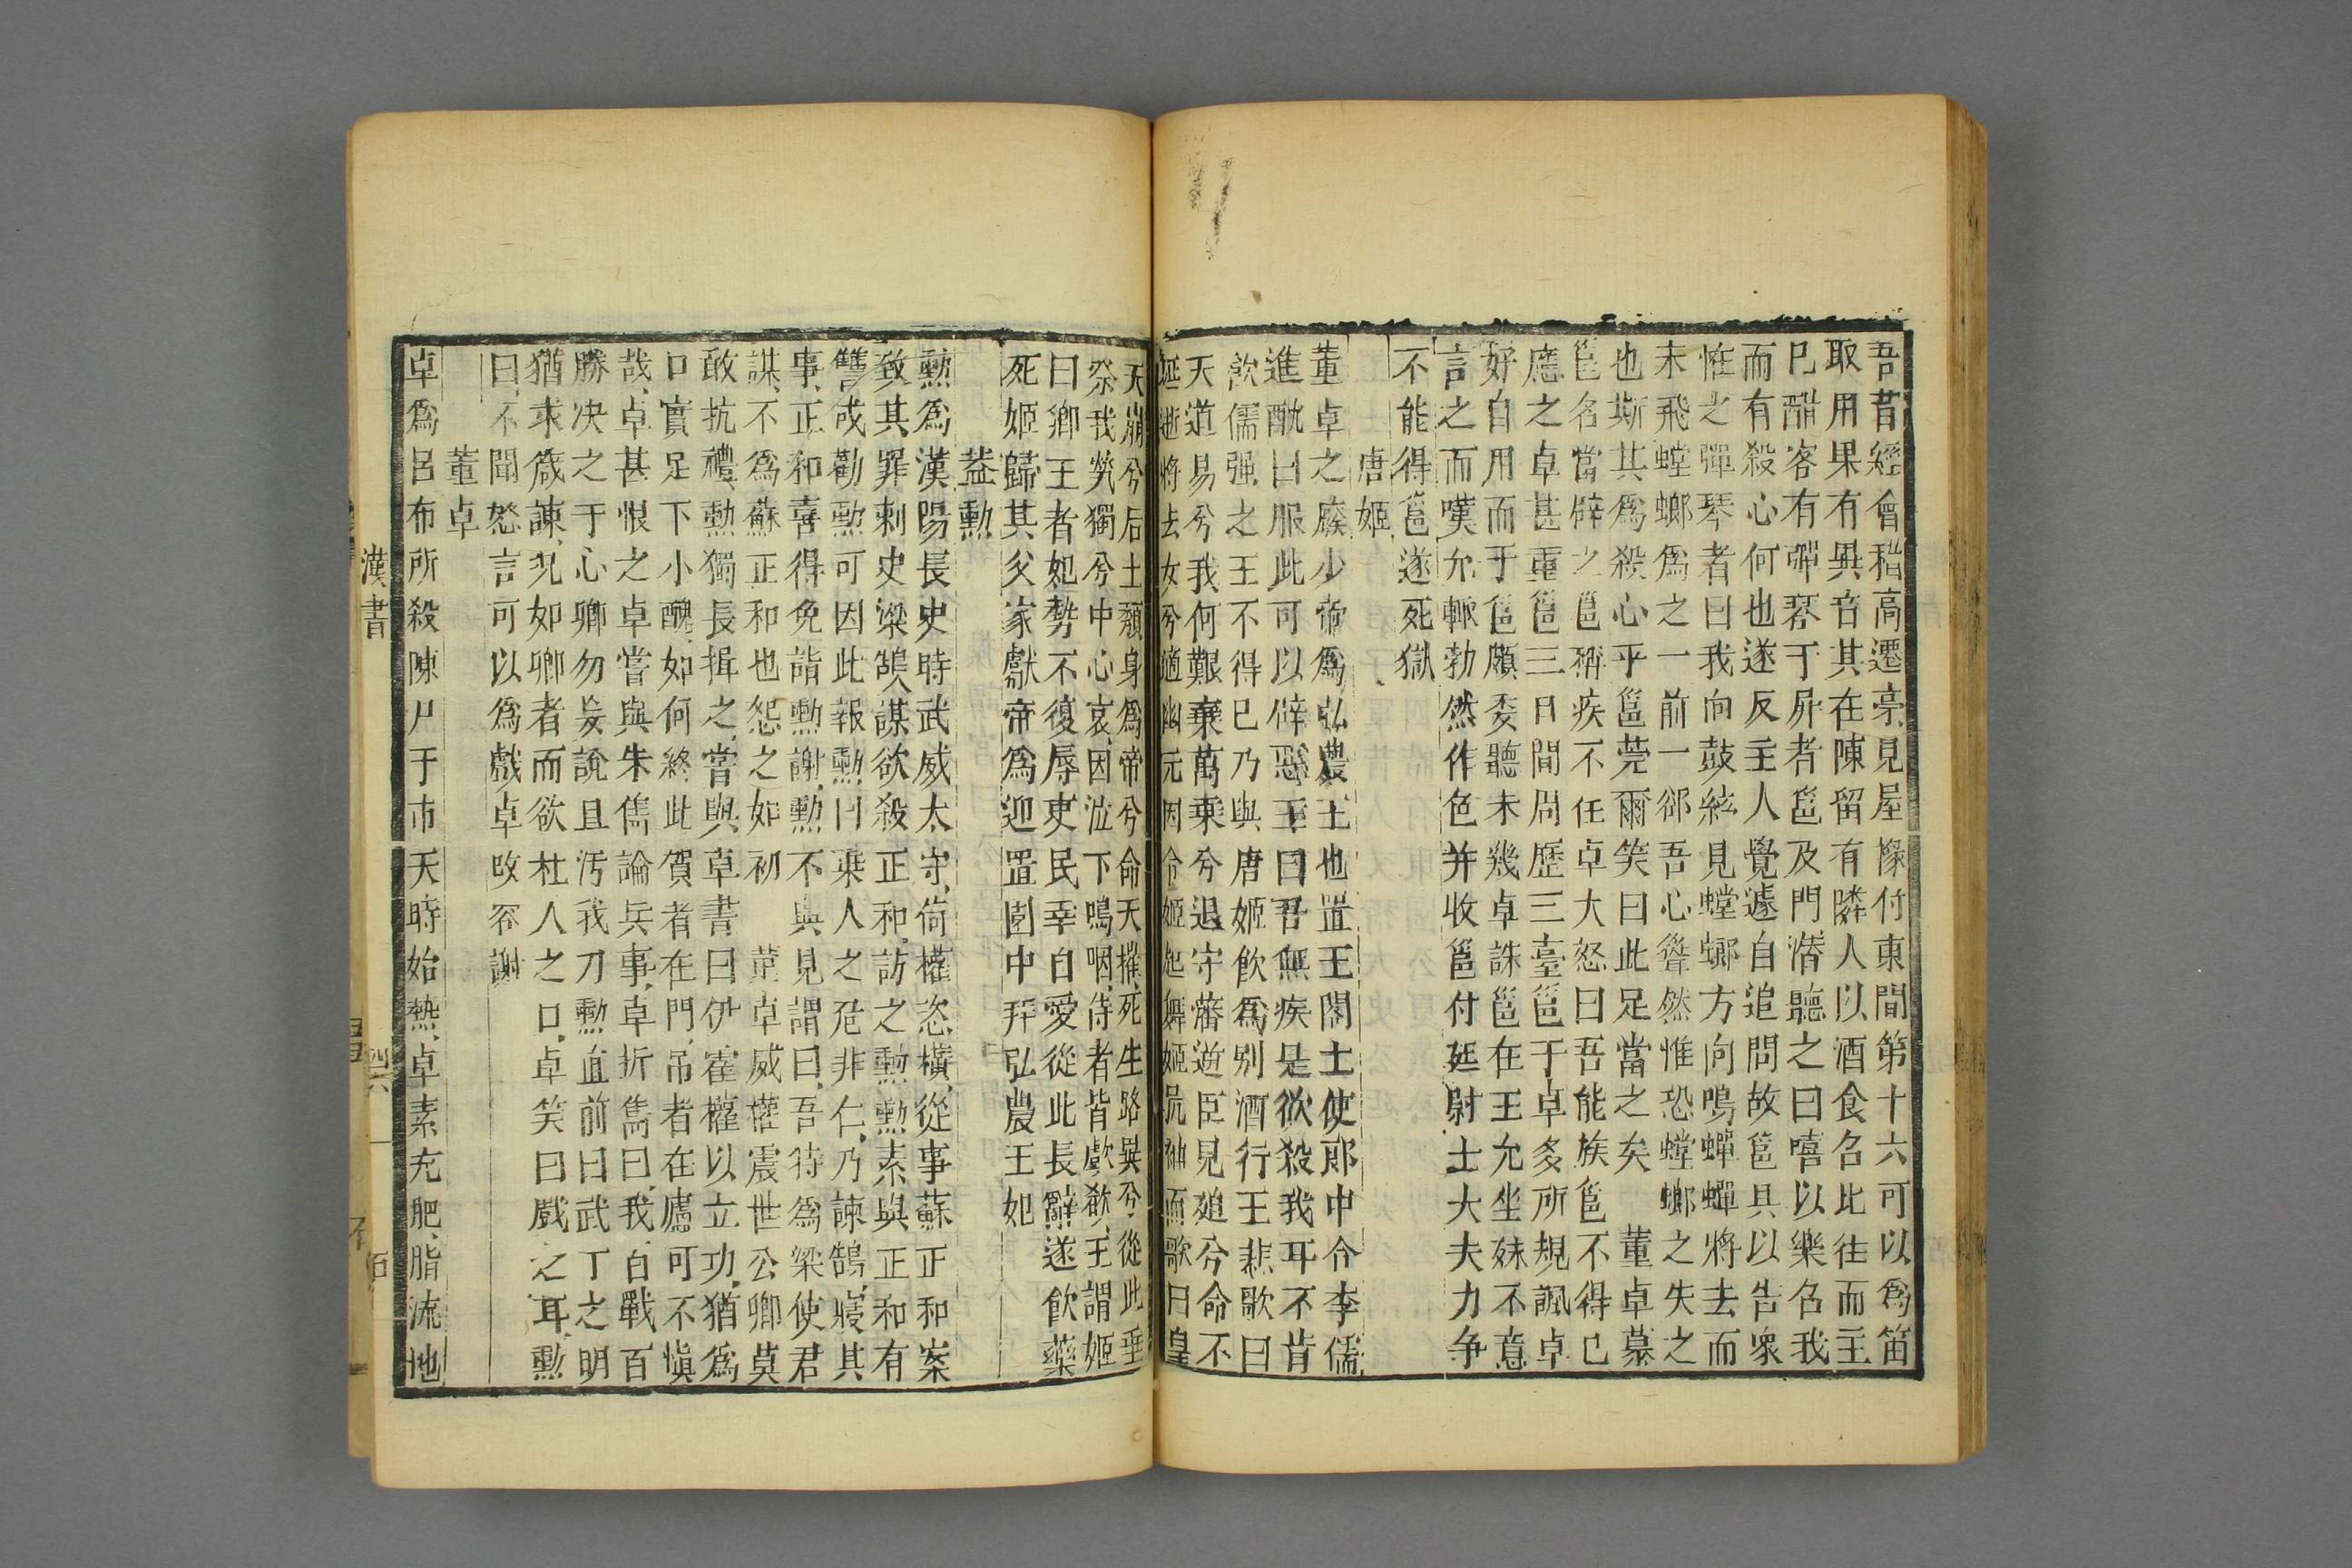 吾昔經會稽高遷亭見屋椽付東間第十六可以爲笛
取用果有異音其在陳留有隣人以酒食名比往而主
巳酣客有彈琴于屏者邕及門潛聽之曰嘻以樂名我
而有殺心何也遂反主人覺遽自追問故邕具以告衆
惟之彈琴者曰我向鼓絃見螳螂方向鳴蟬蟬將去而
未飛螳螂爲之一前一郤吾心聳然惟恐螳螂之失之
也斯其爲殺心乎邕莞爾笑曰此足當之矣　董卓慕
邕名當辟之邕稱疾不任卓大怒曰吾能族邕不得已
應之卓甚重邕三日間周歷三臺邕于卓多所規諷卓
好自用而于邕願委聽未幾卓誅邕在王允坐妹不意
言之而嘆允輒勃然作色并收邕付廷尉士大夫力争
不能得邕遂死獄
唐姬
董卓之廢少帝爲弘農王也置王閣土使郎中令李儒
進酖曰服此可以辟惡王曰吾無疾是欲殺我耳不肯
飲儒强之王不得巳乃與唐姬飲爲别酒行王悲歌曰
天道易兮我何艱棄萬乘兮退守藩逆臣見廹兮命不
延逝將去汝兮適幽元因令姬起舞姬抗袖而歌曰皇
天崩兮后土頽身爲帝兮命夭摧死生路異兮從此垂
柰我煢獨兮中心哀因泣下嗚咽侍者皆歔欷王謂姬
曰卿王者妃勢不復辱吏民幸自愛從此長辭遂飲藥
死姬歸其父家獻帝爲迎置園中拜弘農王妃
葢勲
勲爲漢陽長史時武威太守倚權恣橫從事蘇正和案
致其罪刺史梁鵠謀欲殺正和訪之勲勲素與正和有
讐或勸勲可因此報勲曰乗人之危非仁乃諫鵠寢其
事正和喜得免詣勲謝勲不與見謂曰吾待爲梁使君
謀不爲蘇正和也怨之如初　董卓威權震世公卿莫
敢抗禮勲獨長揖之嘗與卓書曰伊霍權以立功猶爲
口實足下小醜如何終此賀者在門吊者在廬可不愼
哉卓甚恨之卓嘗與朱儁論兵事卓折雋曰我百戰百
勝决之于心卿勿妄說且汚我刀勲直前曰武丁之明
猶求箴諫况如卿者而欲杜人之口卓笑曰戲之耳勲
曰不聞怒言可以爲戲卓改容謝
董卓
卓爲呂布所殺陳尸于市天時始熱卓素充肥脂流地
漢書
四六